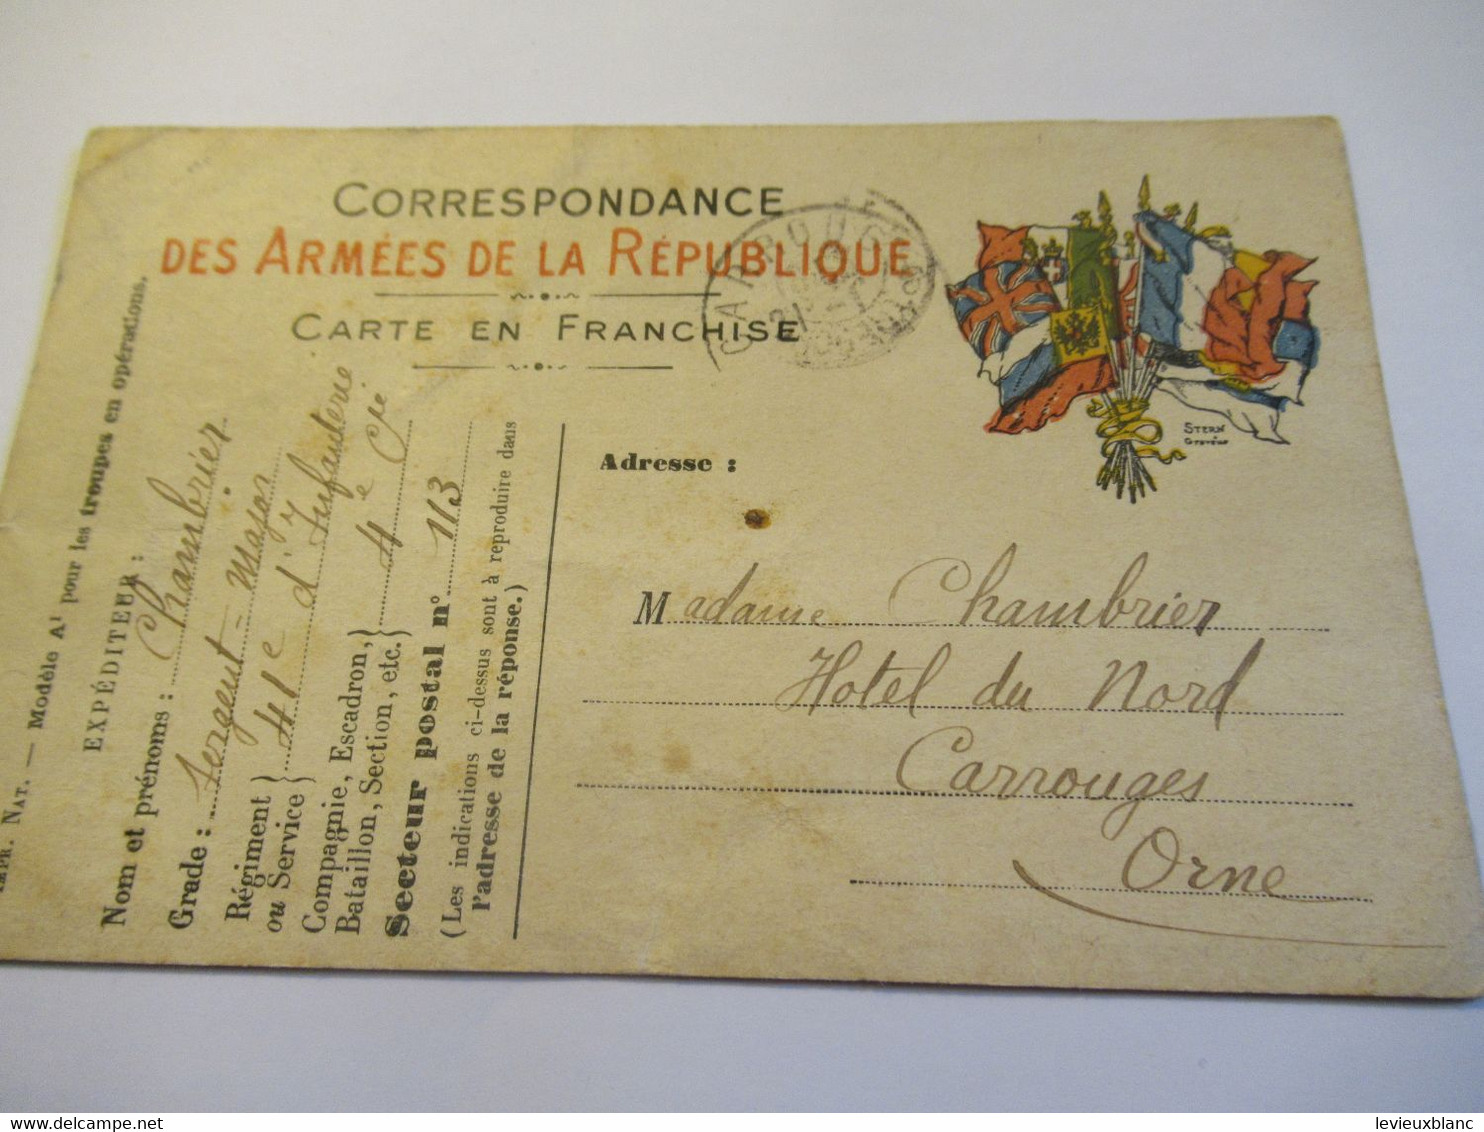 CORRESPONDANCE
DES ARMÉES DE LA RÉPUBLIQUE
CARTE EN FRANCHISE
CARROUGES
STERN
IMPR. NAT. — Modèle A¹ pour les troupes en opérations.
EXPÉDITEUR :
Nom et prénoms : Chambrier
Grade : Sergent-Major
Régiment ou Service } 41e d'Infanterie
Compagnie, Escadron,
Bataillon, Section, etc. } 4e Cie
Secteur postal n° 113
(Les indications ci-dessus sont à reproduire dans
l'adresse de la réponse.)
Adresse :
Madame Chambrier
Hotel du Nord
Carrouges
Orne
levieuxblanc